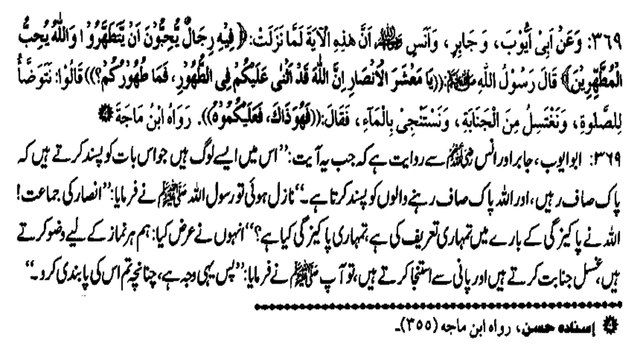 ٣٦٩: وَعَنْ اَبِیْ اَیُّوْبَ، وَجَابِرٍ، وَاَنَسٍ ﷢ اَنَّ هٰذِهِ الْاٰیَةَ لَمَّا نَزَلَتْ: ﴿فِیْهِ رِجَالٌ یُّحِبُّوْنَ اَنْ یَّتَطَهَّرُوْا وَاللّٰهُ یُحِبُّ
الْمُطَّهِّرِیْنَ﴾ قَالَ رَسُوْلُ اللّٰهِ ﷺ: ((یَا مَعْشَرَ الْاَنْصَارِ اِنَّ اللّٰهَ قَدْ اَثْنٰی عَلَیْكُمْ فِی الطُّهُوْرِ، فَمَا طُهُوْرُكُمْ؟)) قَالُوْا: نَتَوَضَّأُ
لِلصَّلٰوةِ، وَنَغْتَسِلُ مِنَ الْجَنَابَةِ، وَنَسْتَنْجِیْ بِالْمَآءِ، فَقَالَ: ((فَهُوَ ذَاكَ، فَعَلَیْكُمُوْهُ)). رَوَاهُ ابْنُ مَاجَةَ
۳۶۹: ابوایوب، جابر اور انس ﷢ سے روایت ہے کہ جب یہ آیت: ”اس میں ایسے لوگ ہیں جو اس بات کو پسند کرتے ہیں کہ
پاک صاف رہیں، اور اللہ پاک صاف رہنے والوں کو پسند کرتا ہے۔“ نازل ہوئی تو رسول اللہ ﷺ نے فرمایا: ”انصار کی جماعت!
اللہ نے پاکیزگی کے بارے میں تمہاری تعریف کی ہے، تمہاری پاکیزگی کیا ہے؟“ انہوں نے عرض کیا: ہم ہر نماز کے لیے وضو کرتے
ہیں، غسل جنابت کرتے ہیں اور پانی سے استنجا کرتے ہیں، تو آپ ﷺ نے فرمایا: ”پس یہی وجہ ہے، چنانچہ تم اس کی پابندی کرو۔“
إسناده حسن، رواه ابن ماجه (٣٥٥)۔